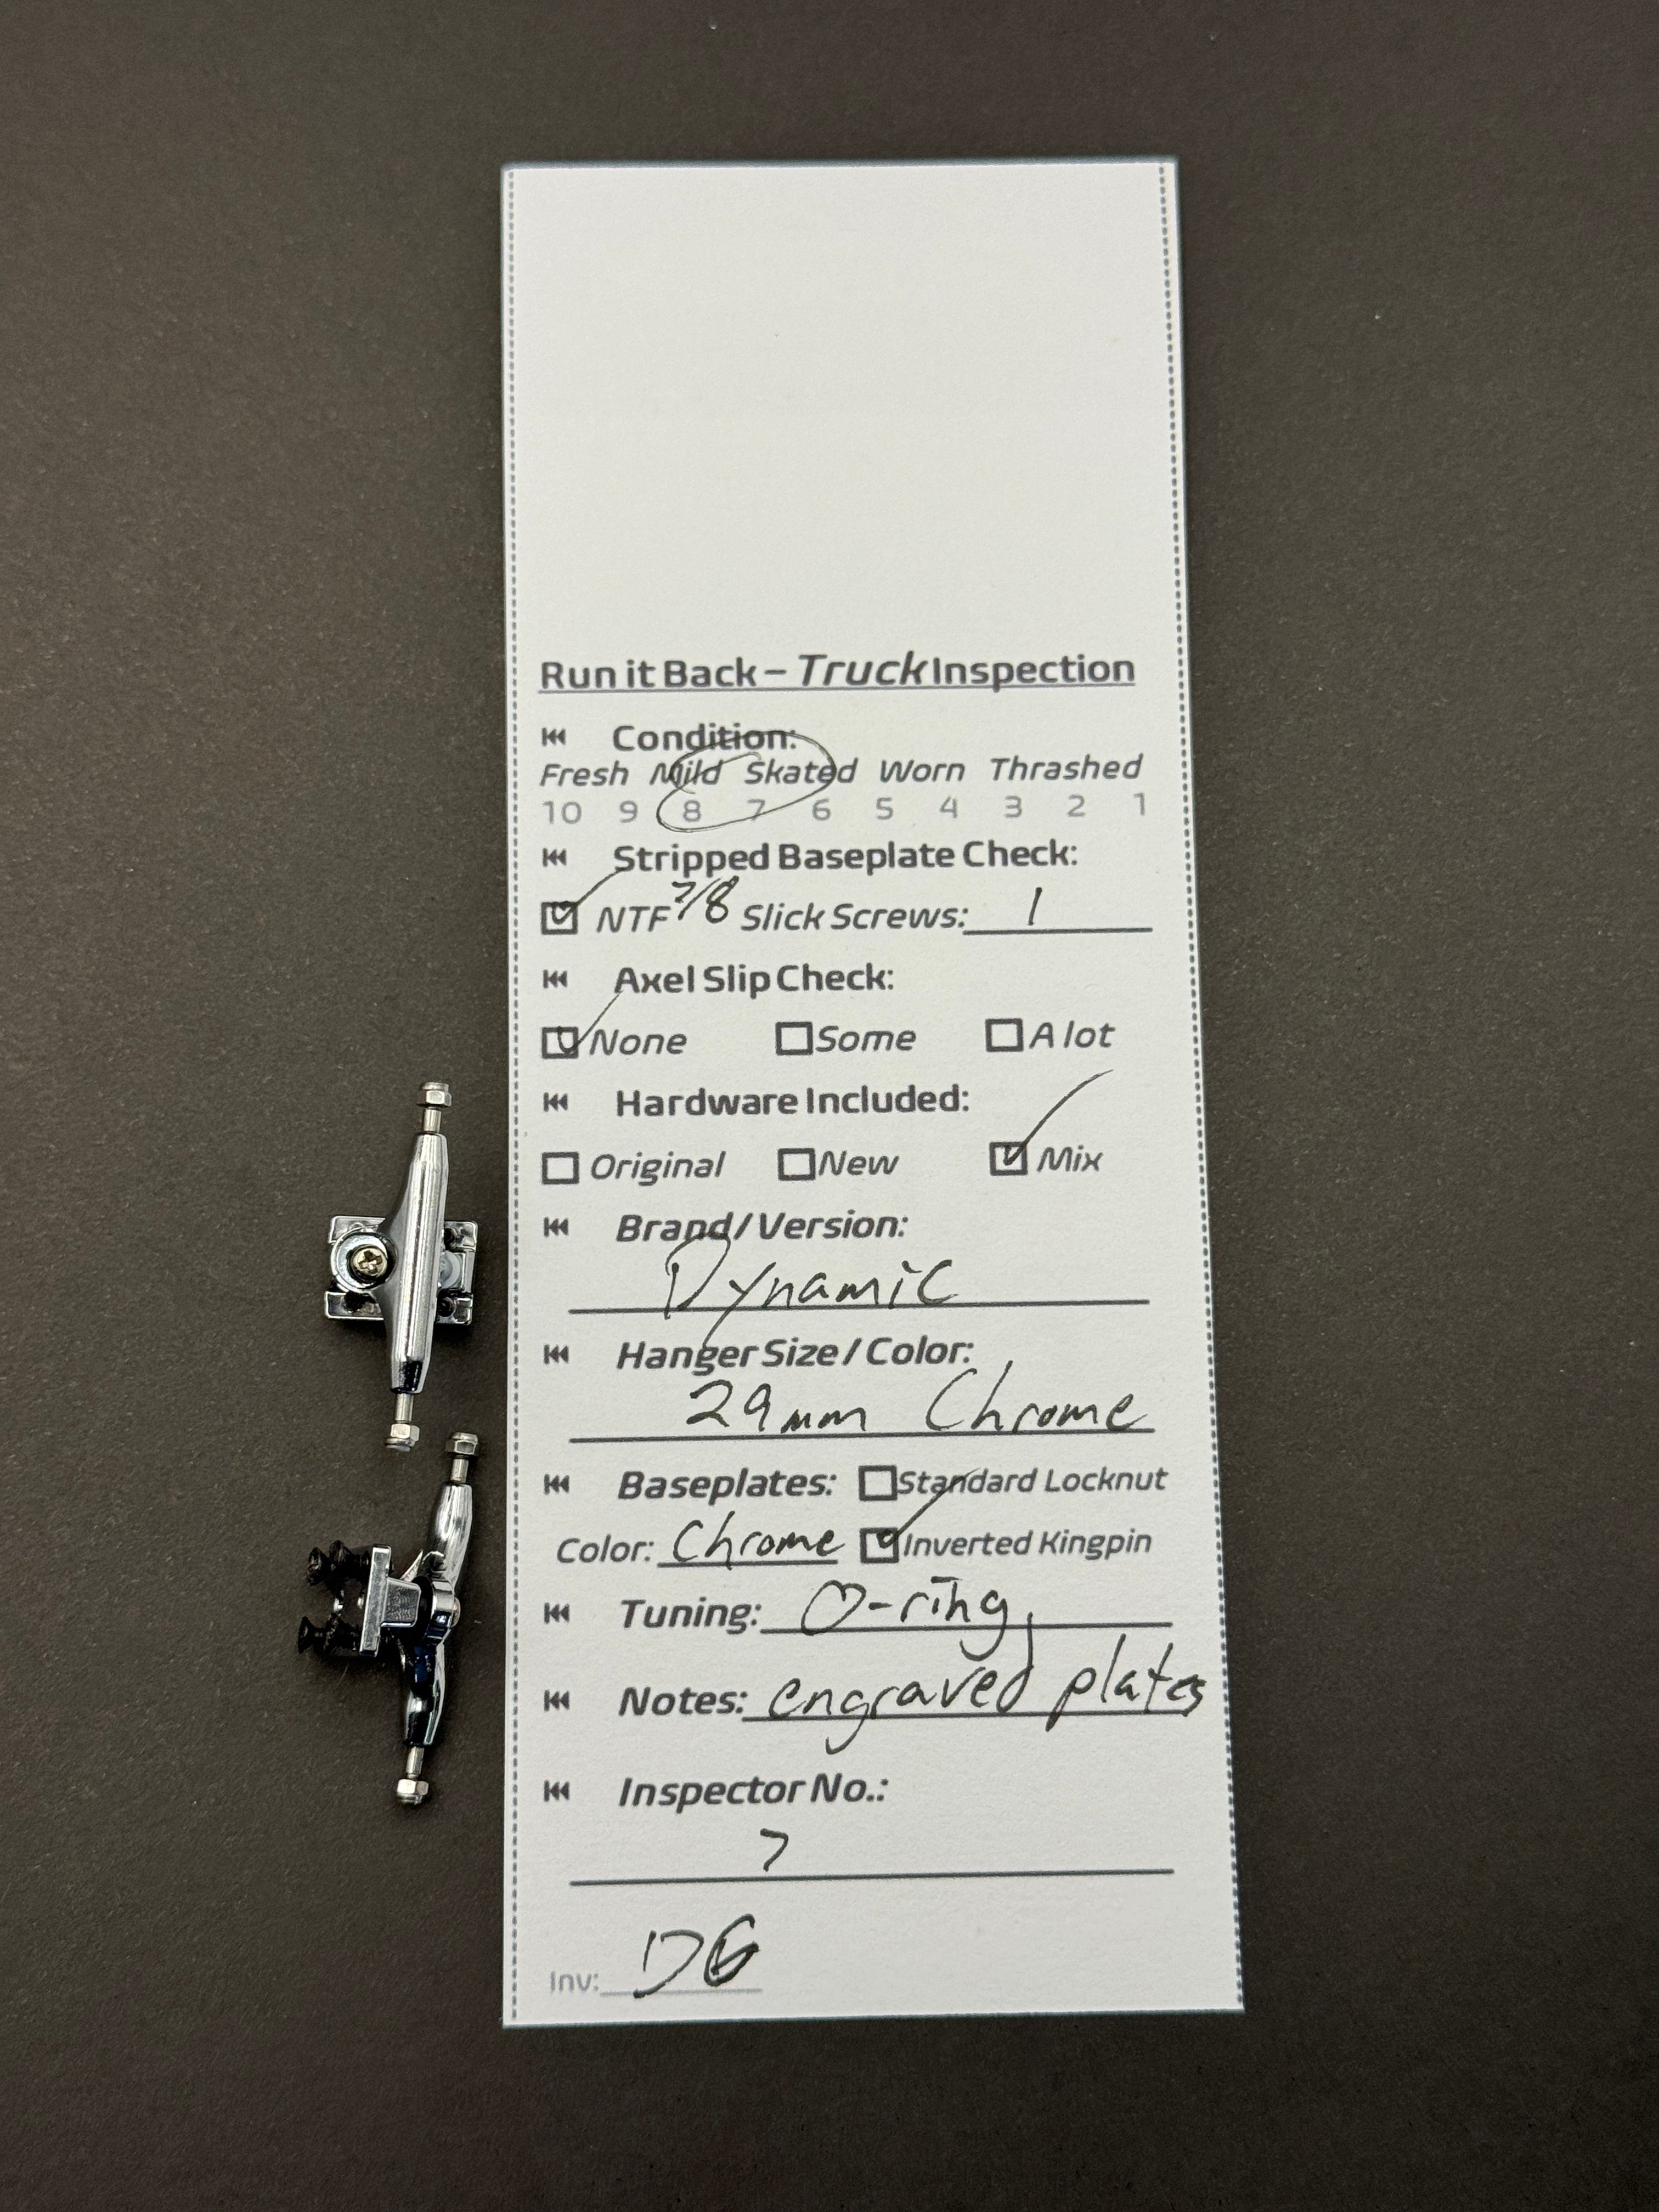 Run it Back - Truck Inspection
Condition:
Fresh Mild Skated Worn Thrashed
10 9 8 7 6 5 4 3 2 1
Stripped Baseplate Check:
NTF 7/8 Slick Screws: 1
Axel Slip Check:
None Some A lot
Hardware Included:
Original New Mix
Brand/Version:
Dynamic
Hanger Size/Color:
29mm Chrome
Baseplates: Standard Locknut
Color: Chrome Inverted Kingpin
Tuning: O-ring
Notes: engraved plates
Inspector No.:
7
Inv: